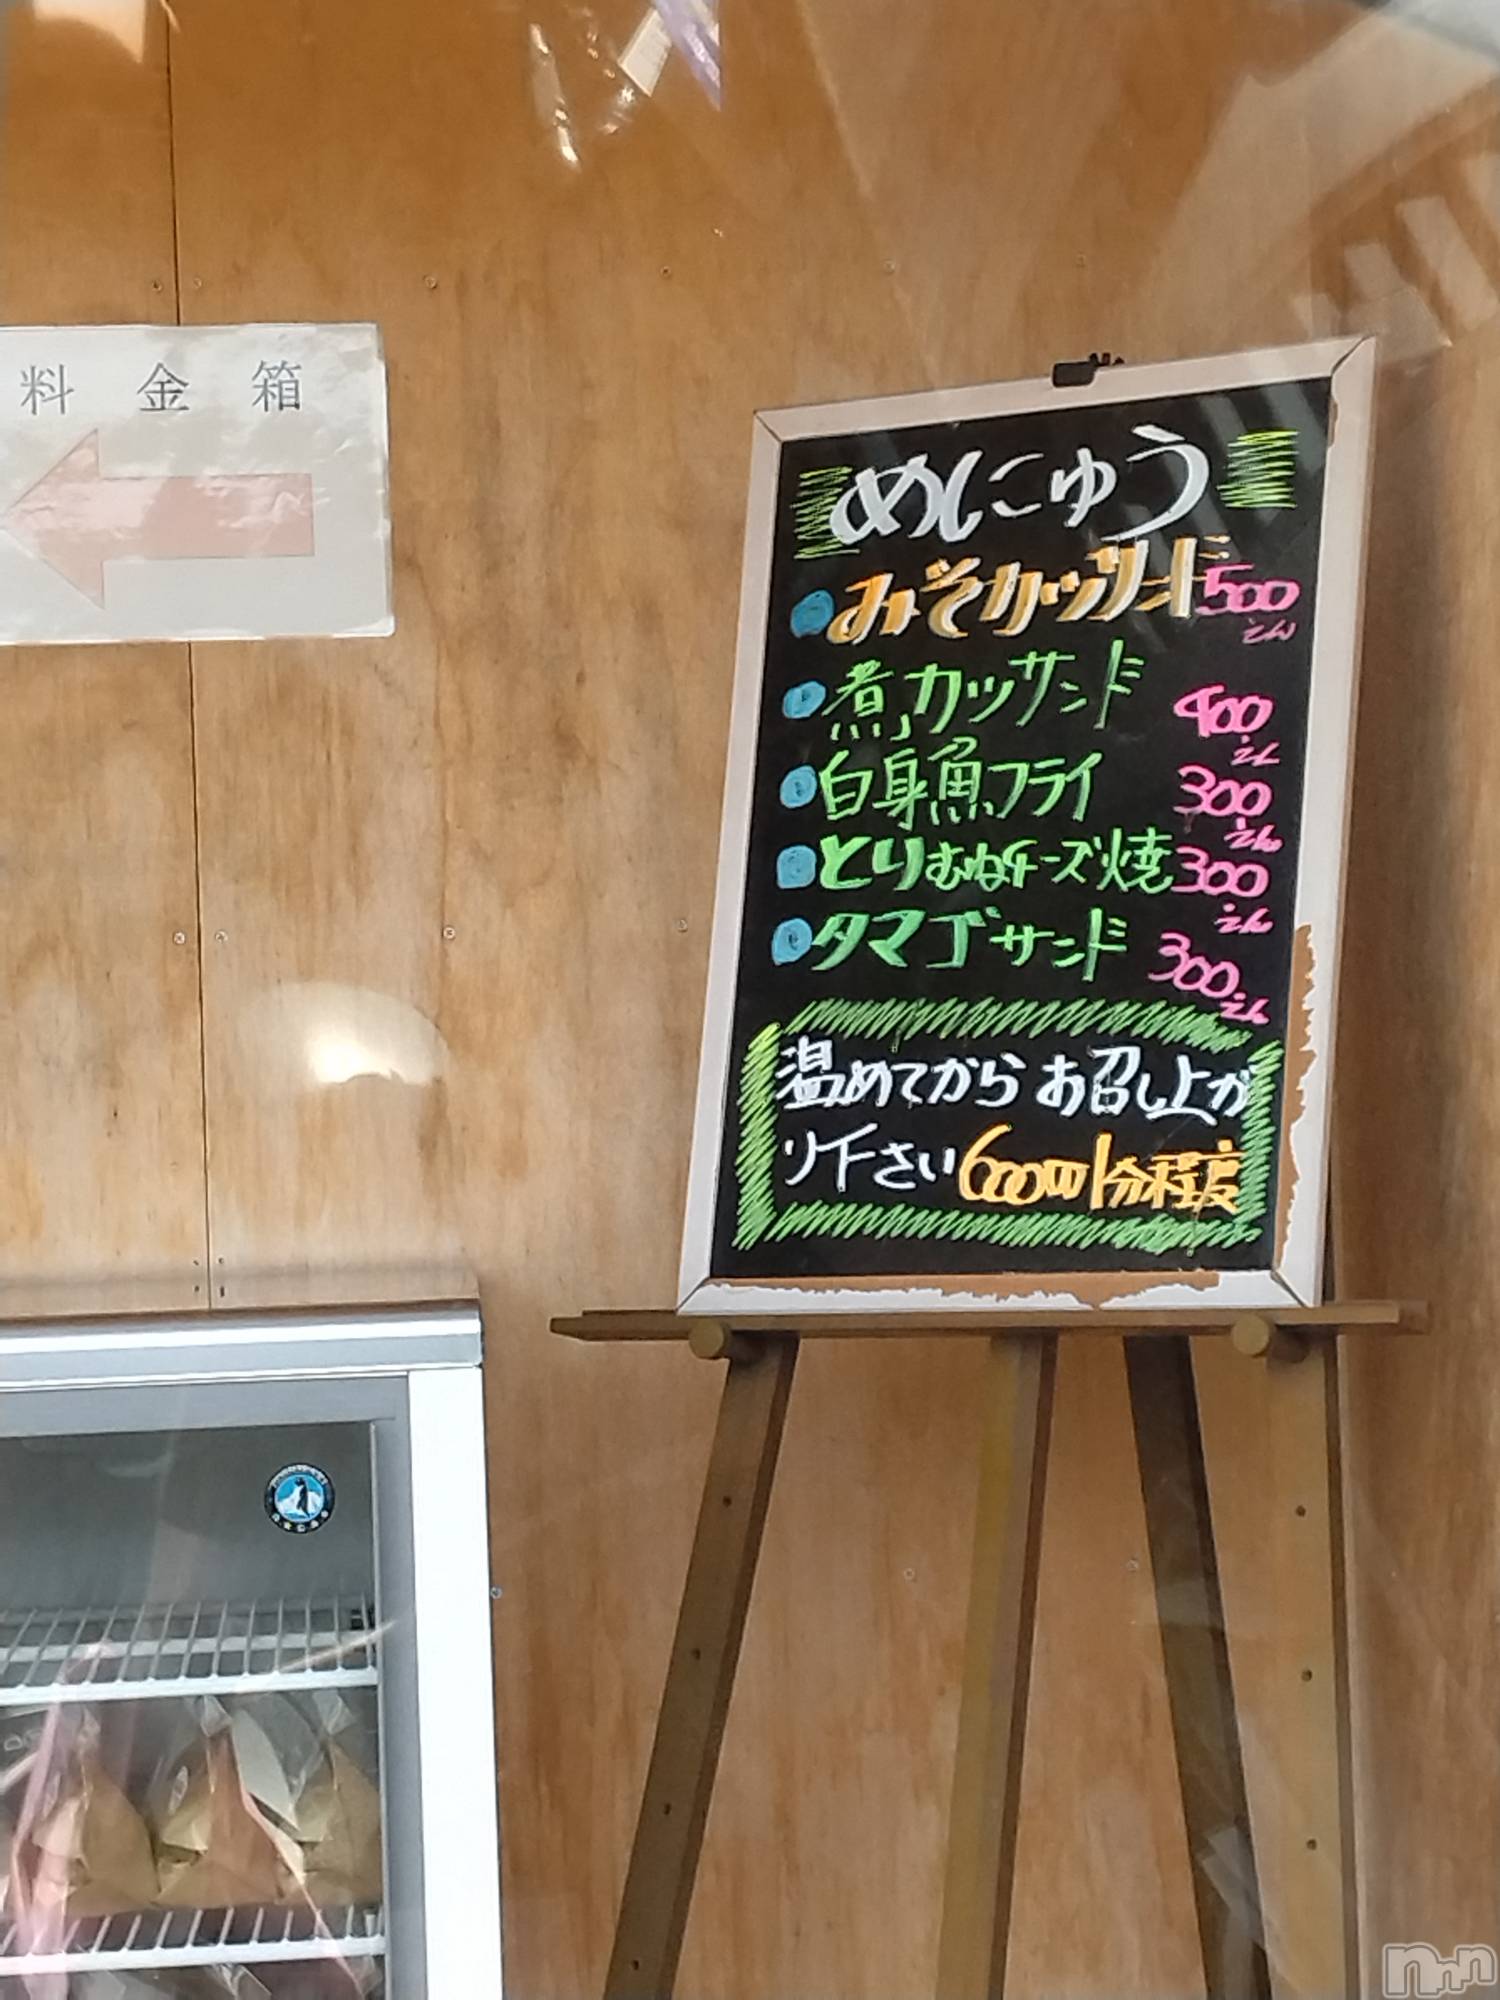 料金箱
めにゅう
みそカツサンド 500えん
煮カツサンド 400えん
白身魚フライ 300えん
とりむねチーズ焼 300えん
タマゴサンド 300えん
温めてからお召し上が
り下さい 600W1分程度